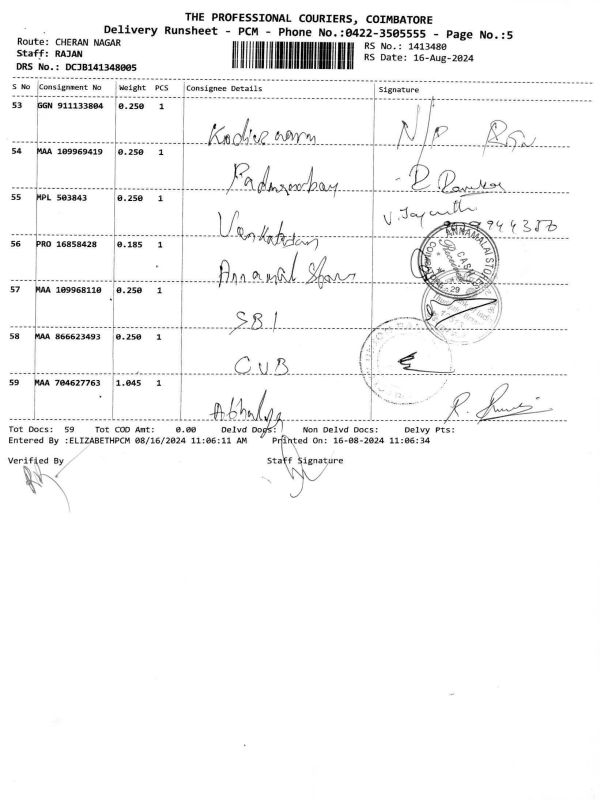 THE PROFESSIONAL COURIERS, COIMBATORE
Delivery Runsheet - PCM - Phone No.:0422-3505555 - Page No.:5
Route: CHERAN NAGAR RS No.: 1413480
Staff: RAJAN RS Date: 16-Aug-2024
DRS No.: DCJB141348005
S No Consignment No Weight PCS Consignee Details Signature
53 GGN 911133804 0.250 1
N/P
54 MAA 109969419 0.250 1
55 MPL 503843 0.250 1
V. Jayanthi
56 PRO 16858428 0.185 1
ANNAMALAI STORE
CASH
57 MAA 109968110 0.250 1
SBI
58 MAA 866623493 0.250 1
CUB
59 MAA 704627763 1.045 1
Tot Docs: 59 Tot COD Amt: 0.00 Delvd Docs: Non Delvd Docs: Delvy Pts:
Entered By :ELIZABETHPCM 08/16/2024 11:06:11 AM Printed On: 16-08-2024 11:06:34
Verified By Staff Signature